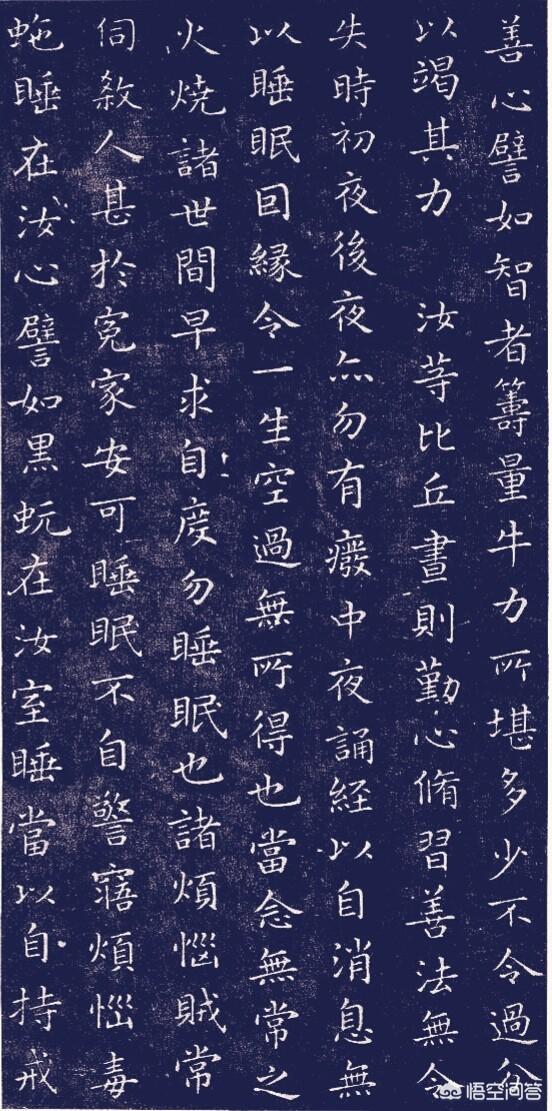 善心譬如智者籌量牛力所堪多少不令過分
以竭其力　汝等比丘晝則勤心脩習善法無令
失時初夜後夜亦勿有癈中夜誦経以自消息無
以睡眠因縁令一生空過無所得也當念無常之
火燒諸世間早求自度勿睡眠也諸煩惱賊常
伺煞人甚於寃家安可睡眠不自警寤煩惱毒
虵睡在汝心譬如黒蚖在汝室睡當以自持戒
悟空问答